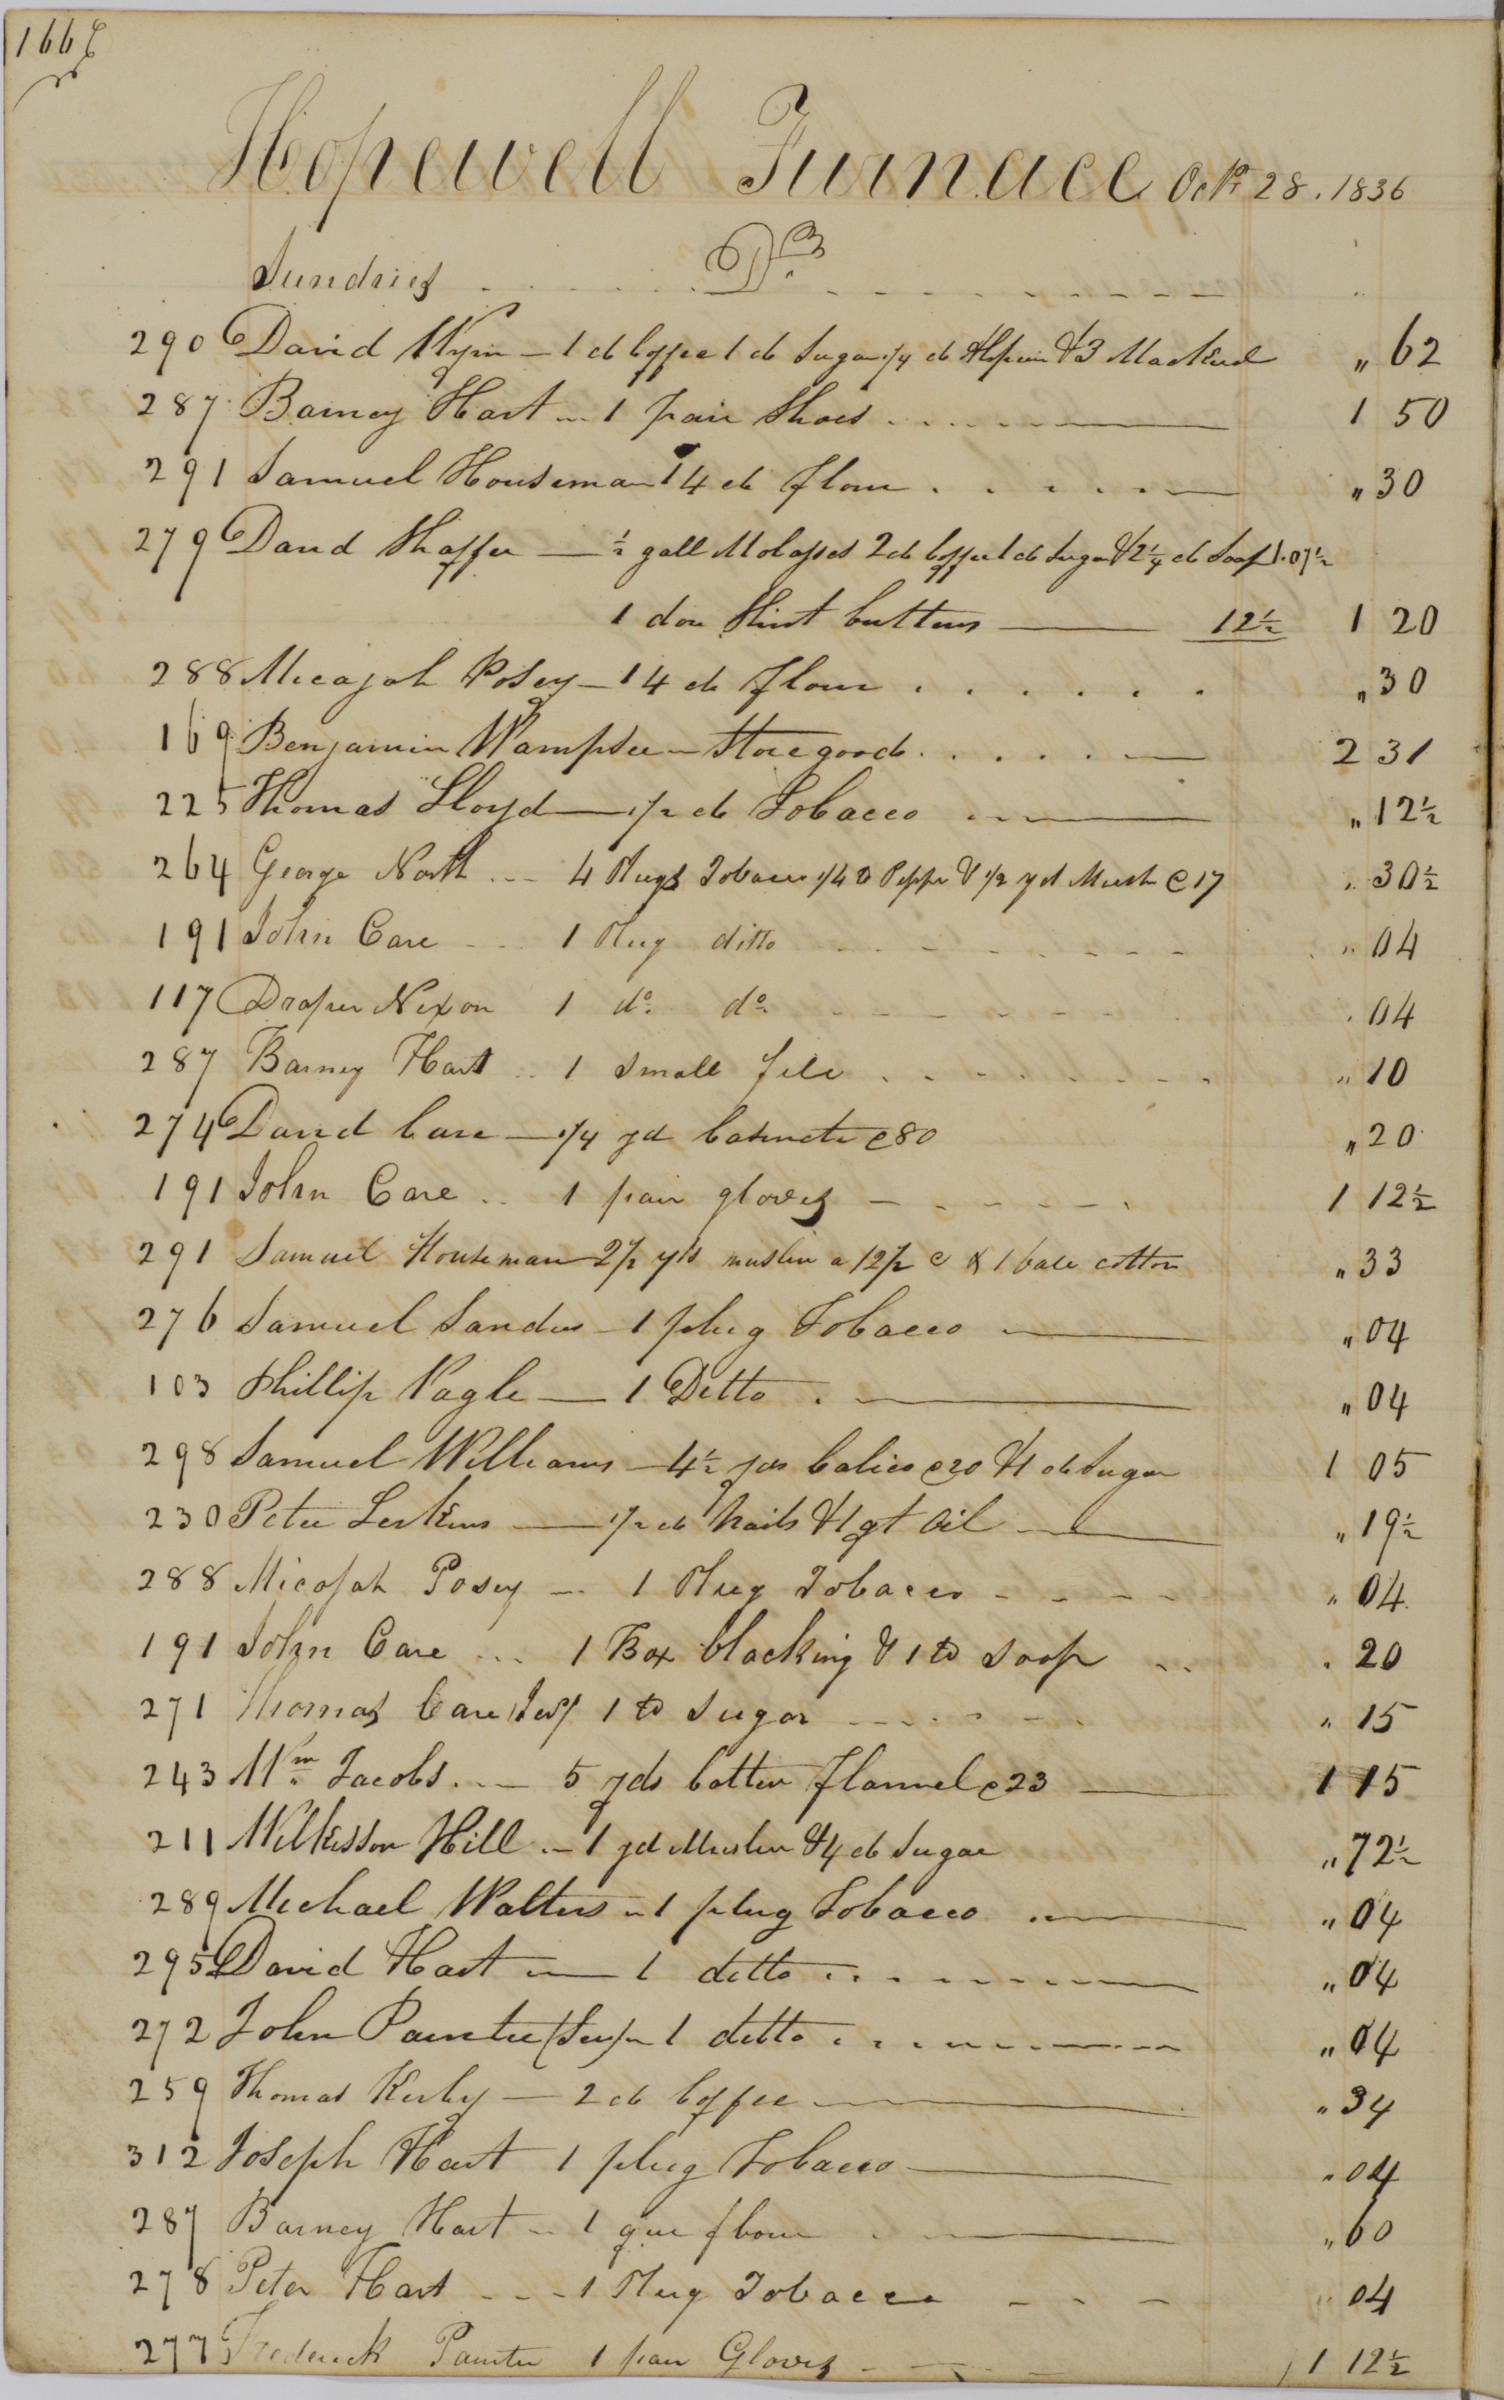 166
Hopewell Furnace Octr 28. 1836
Sundries Dr.
290 David Wynn — 1 lb Coffee 1 lb Sugar 1/4 lb & 3 Mackerel „ 62
287 Barney Hart — 1 pair Shoes 1 50
291 Samuel Houseman 14 lb flour „ 30
279 David Shaffer — ½ gall Molasses 2 lb Coffee 1 lb Sugar & 2¼ lb Soap 1.07½
1 doz Shirt buttons — 12½ 1 20
288 Micajah Posey — 14 lb flour „ 30
169 Benjamin Wampsher — Store goods 2 31
225 Thomas Lloyd — 1/2 lb Tobacco „ 12½
264 George North — 4 Plugs Tobacco 1/4 lb Pepper & 1/2 yd Musln @ 17 „ 30½
191 John Care — 1 Plug ditto „ 04
117 Draper Nixon 1 do. do. „ 04
287 Barney Hart — 1 small file „ 10
274 David Care — 1/4 yd Casinette @ 80 „ 20
191 John Care — 1 pair gloves — 1 12½
291 Samuel Houseman 2 1/2 yds muslin a 12 1/2 c & 1 bale cotton „ 33
276 Samuel Sands — 1 plug Tobacco „ 04
103 Phillip Nagle — 1 Ditto „ 04
298 Samuel Williams — 4½ yds Calico @ 20 & 1 lb Sugar 1 05
230 Peter Lerkins — 1/2 lb Nails & 1 qt Oil „ 19½
288 Micajah Posey — 1 Plug Tobacco „ 04
191 John Care — 1 Box blacking & 1 lb Soap „ 20
271 Thomas Care 1 lb Sugar „ 15
243 Wm. Jacobs — 5 yds Cotton flannel @ 23 1 15
211 Wilkisson Hill — 1 yd Muslin & 4 lb Sugar „ 72½
289 Michael Walters — 1 plug Tobacco „ 04
295 David Hart — 1 ditto „ 04
272 John Painter (Sen) — 1 ditto „ 04
259 Thomas Kirby — 2 lb Coffee „ 34
312 Joseph Hart 1 plug Tobacco „ 04
287 Barney Hart — 1 qur flour „ 60
278 Peter Hart — 1 Plug Tobacco „ 04
277 Frederick Painter 1 pair Gloves 1 12½